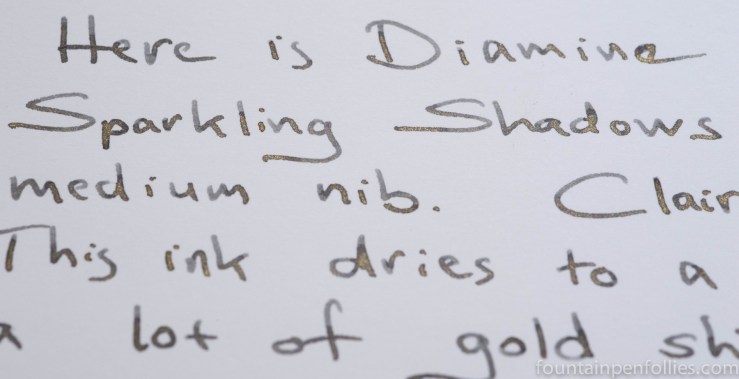 Here is Diamine
Sparkling Shadows
medium nib. Clair
This ink dries to a
a lot of gold sh
fountainpenfollies.com